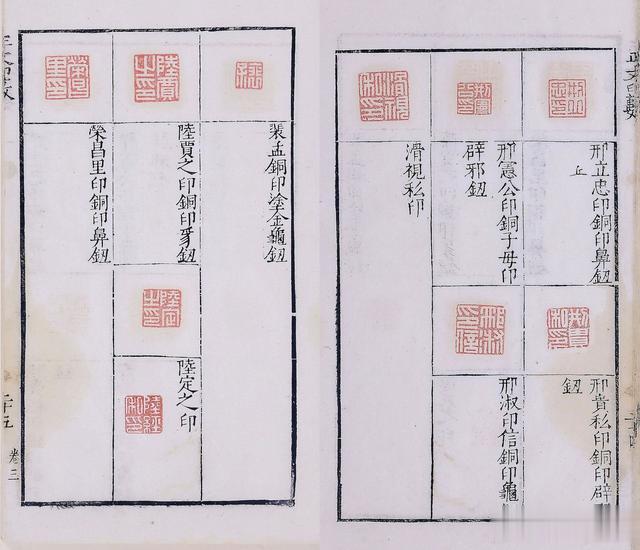 邢立忠印銅印鼻鈕
丘
邢憲公印銅子母印
辟邪鈕
滑視私印
邢貴私印銅印辟
鈕
邢淑印信銅印龜
裴孟銅印塗金龜鈕
陸賈之印銅印豸鈕
陸定之印
榮昌里印銅印鼻鈕
卷三
二十五